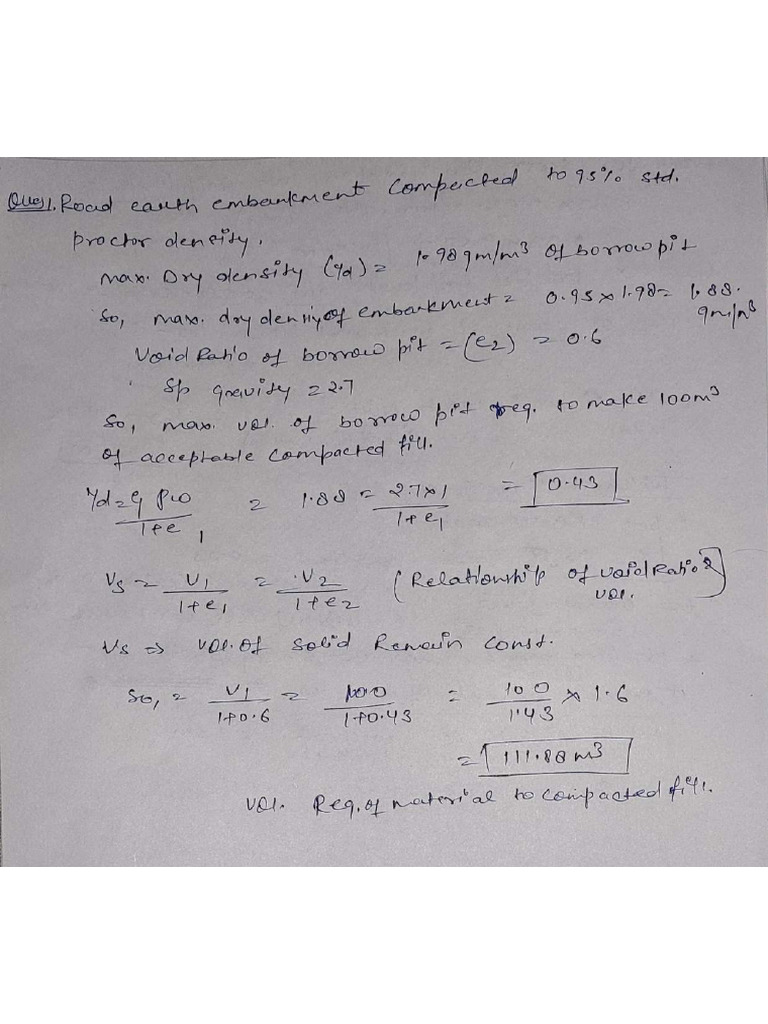 Ques1. Road earth embankment compacted to 95% std.
Proctor density.
max. Dry density (γd) = 1.98 gm/m³ of borrow pit
So, max. dry density of embankment = 0.95 x 1.98 = 1.88.
gm/m³
Void Ratio of borrow pit = (e2) = 0.6
Sp gravity = 2.7
So, max. vol. of borrow pit req. to make 100m³
of acceptable compacted fill.
γd = G ρω = 1.88 = 2.7x1 = 0.43
1+e1 1+e1
Vs = V1 = V2 (Relationship of void Ratio &
1+e1 1+e2 vol.)
Vs => vol. of solid Remain const.
So, = V1 = 100 = 100 x 1.6
1+0.6 1+0.43 1.43
= 111.88 m³
vol. Req. of material to compacted fill.